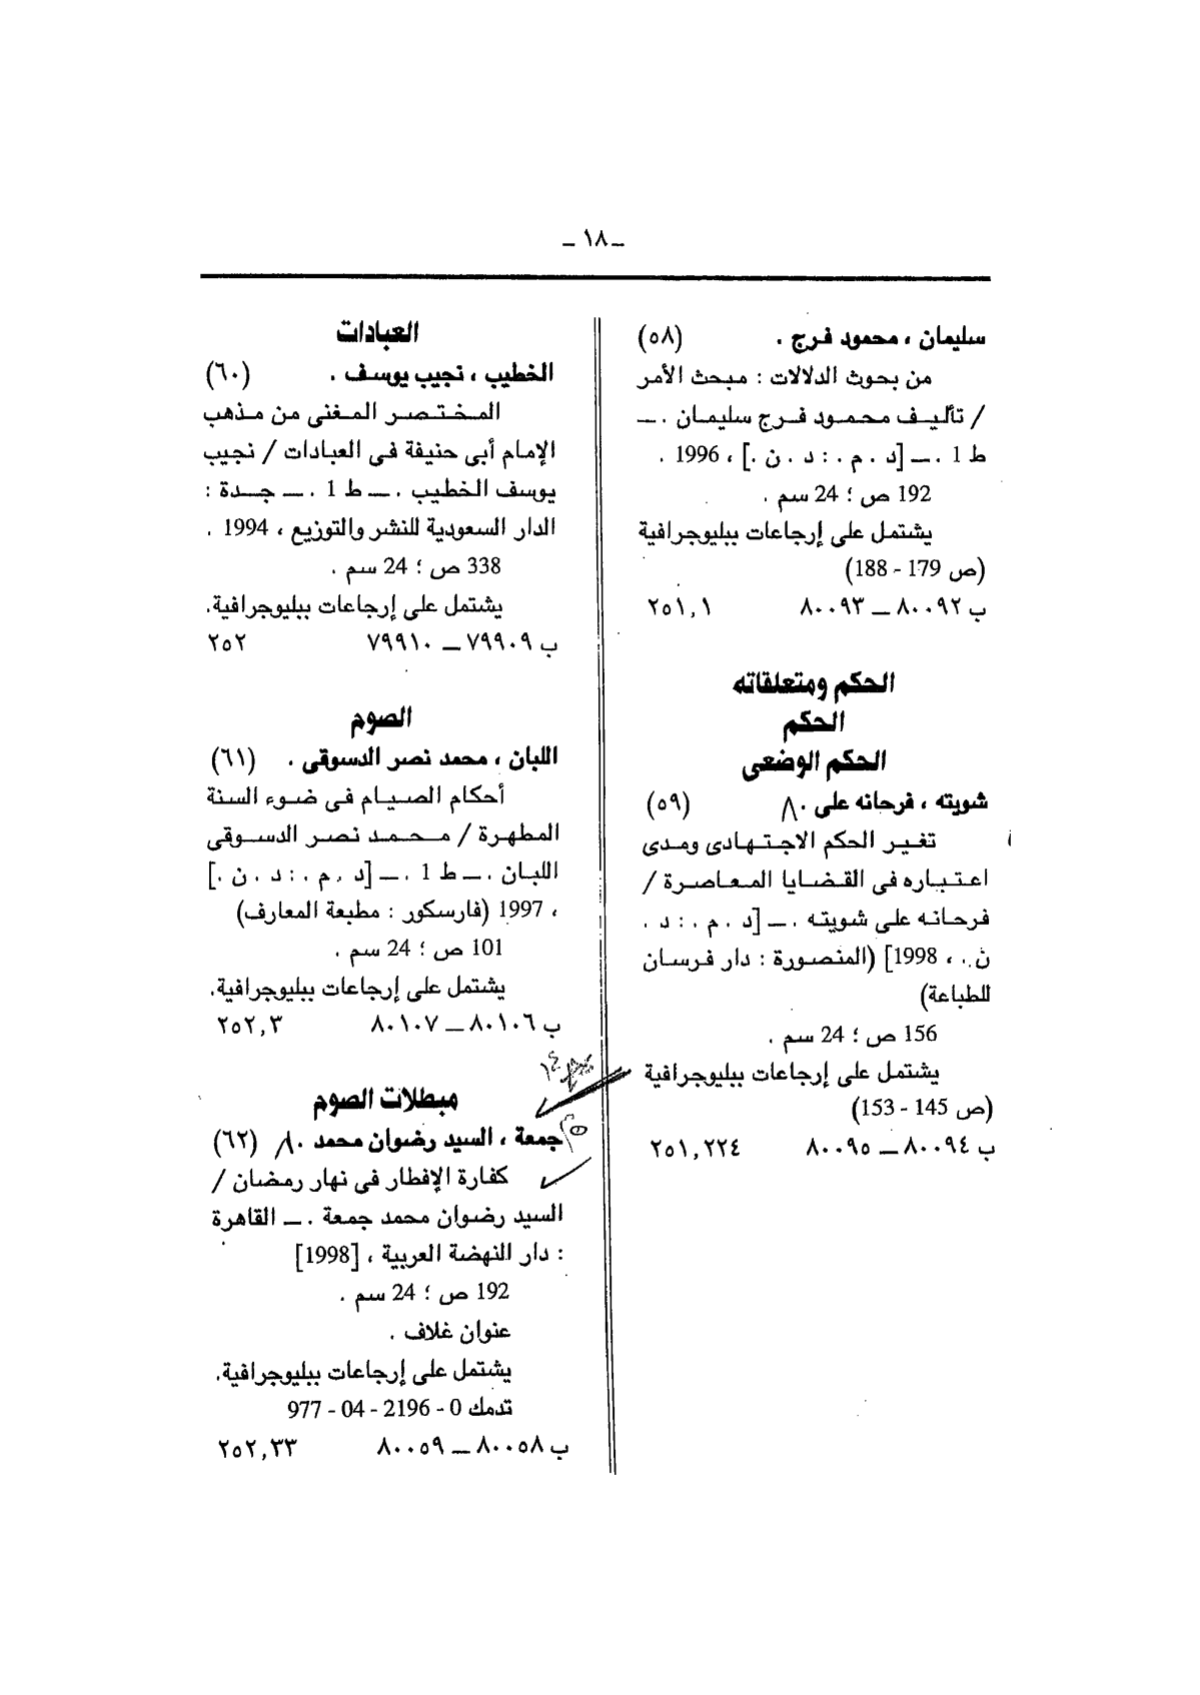 ـ ١٨ ـ
سليمان ، محمود فرج . (٥٨)
من بحوث الدلالات : مبحث الأمر
/ تأليف محمود فرج سليمان . ـ
ط 1 . ـ [د . م . : د . ن .] ، 1996 .
192 ص ؛ 24 سم .
يشتمل على إرجاعات ببليوجرافية
(ص 179 - 188)
ب ٨٠٠٩٢ ـ ٨٠٠٩٣ ٢٥١,١
الحكم ومتعلقاته
الحكم
الحكم الوضعى
شويته ، فرحانه على . (٥٩)
تغير الحكم الاجتهادى ومدى
اعتباره فى القضايا المعاصرة /
فرحانه على شويته . ـ [د . م . : د .
ن . ، 1998] (المنصورة : دار فرسان
للطباعة)
156 ص ؛ 24 سم .
يشتمل على إرجاعات ببليوجرافية
(ص 145 - 153)
ب ٨٠٠٩٤ ـ ٨٠٠٩٥ ٢٥١,٢٢٤
العبادات
الخطيب ، نجيب يوسف . (٦٠)
المختصر المغنى من مذهب
الإمام أبى حنيفة فى العبادات / نجيب
يوسف الخطيب . ـ ط 1 . ـ جدة :
الدار السعودية للنشر والتوزيع ، 1994 .
338 ص ؛ 24 سم .
يشتمل على إرجاعات ببليوجرافية.
ب ٧٩٩٠٩ ـ ٧٩٩١٠ ٢٥٢
الصوم
اللبان ، محمد نصر الدسوقى . (٦١)
أحكام الصيام فى ضوء السنة
المطهرة / محمد نصر الدسوقى
اللبان . ـ ط 1 . ـ [د . م . : د . ن .]
، 1997 (فارسكور : مطبعة المعارف)
101 ص ؛ 24 سم .
يشتمل على إرجاعات ببليوجرافية.
ب ٨٠١٠٦ ـ ٨٠١٠٧ ٢٥٢,٣
مبطلات الصوم
جمعة ، السيد رضوان محمد . (٦٢)
كفارة الإفطار فى نهار رمضان /
السيد رضوان محمد جمعة . ـ القاهرة
: دار النهضة العربية ، [1998]
192 ص ؛ 24 سم .
عنوان غلاف .
يشتمل على إرجاعات ببليوجرافية.
تدمك 0 - 2196 - 04 - 977
ب ٨٠٠٥٨ ـ ٨٠٠٥٩ ٢٥٢,٣٣